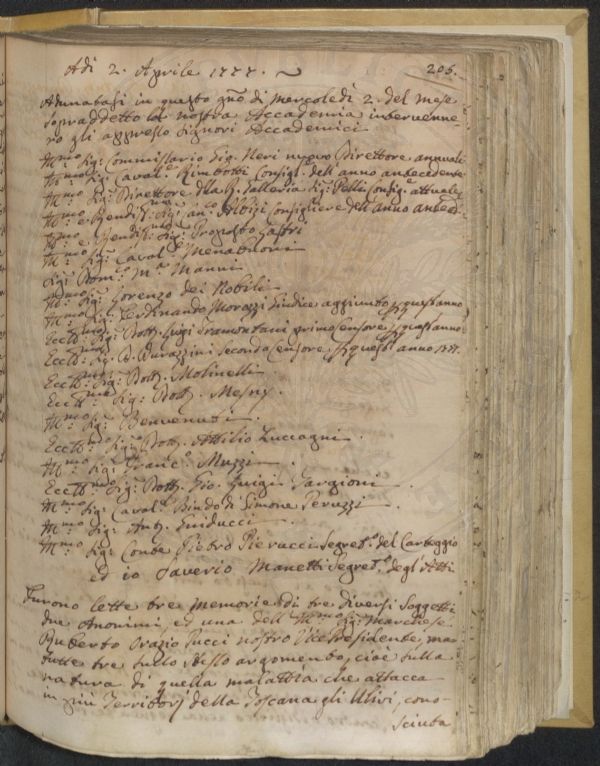 Adì 2. Aprile 1777.
205.
Adunatasi in questo gno di Mercoledì 2. del mese
sopraddetto la nostra Accademia intervenne-
ro gli appresso Signori Accademici
Illmo Sig: Commissario Sig: Neri nuovo Direttore annuale
Illmo Sig: Caval: Rimbotti Consigl: dell'anno antecedente
Illmo Sig: Direttore della Galleria Sig: Pelli Consig: attuale
Illmo e Rendis: Sig: Can:co Albizi Consigliere dell'anno anteced:
Illmo e Rendis: Sig: Proposto Lastri
Illmo Sig: Caval: Menabuoni
Sig: Dom:o M:a Manni
Illmo Sig: Lorenzo dei Nobili
Illmo Sig: Ferdinando Morozzi Giudice aggiunto p quest'anno
Ecctmo Sig: Dott: Luigi Tramontani primo Censore p quest'anno
Ecctmo Sig: D. Durazzini secondo Censore p quest'anno 1777.
Ecctmo Sig: Dott: Molinelli
Ecctmo Sig: Dott: Mesny.
Illmo Sig: Benvenuti.
Ecctmo Sig: Dott: Attilio Zuccagni.
Illmo Sig: Franc:o Muzzi.
Ecctmo Sig: Dott: Gio: Luigi Targioni.
Illmo Sig: Caval: Bindo di Simone Peruzzi.
Illmo Sig: Ant: Guiducci.
Illmo Sig: Conte Pietro Pierucci Segret:o del Carteggio
ed io Saverio Manetti Segret:o degl'Atti
Furono lette tre memorie di tre diversi Soggetti
due Anonimi ed una dell'Illmo Sig: Marchese
Ruberto Orazio Pucci nostro Vicepresidente ma
tutte tre sullo stesso argomento, cioè sulla
natura di quella malattia che attacca
in più Territorj della Toscana gli Ulivi, cono-
sciuta